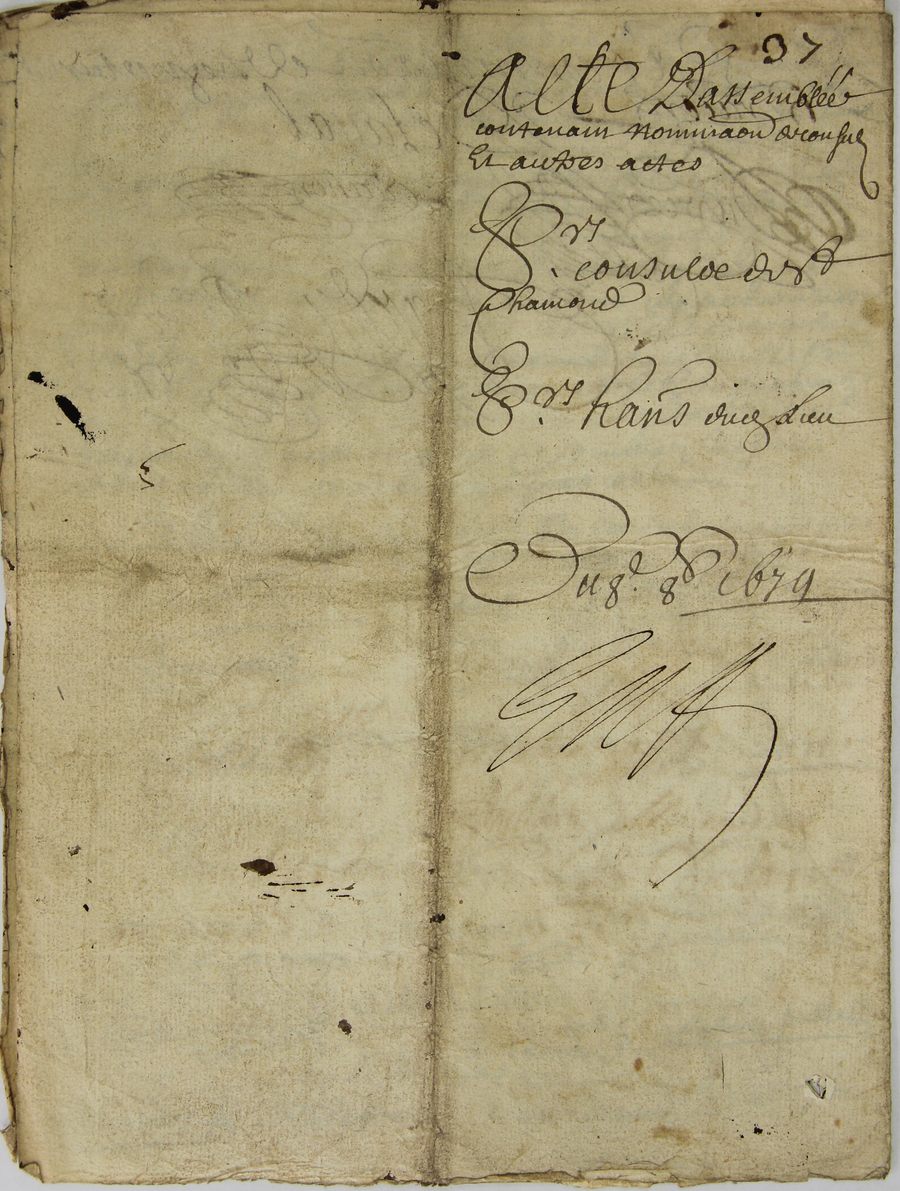 37
Acte Dassemblée
contenant nominaôn de consulz
Et autres actes
Prs
. consulz de St
Chamond
Prs. hans dud. Lieu
Du 8e. 8bre 1679